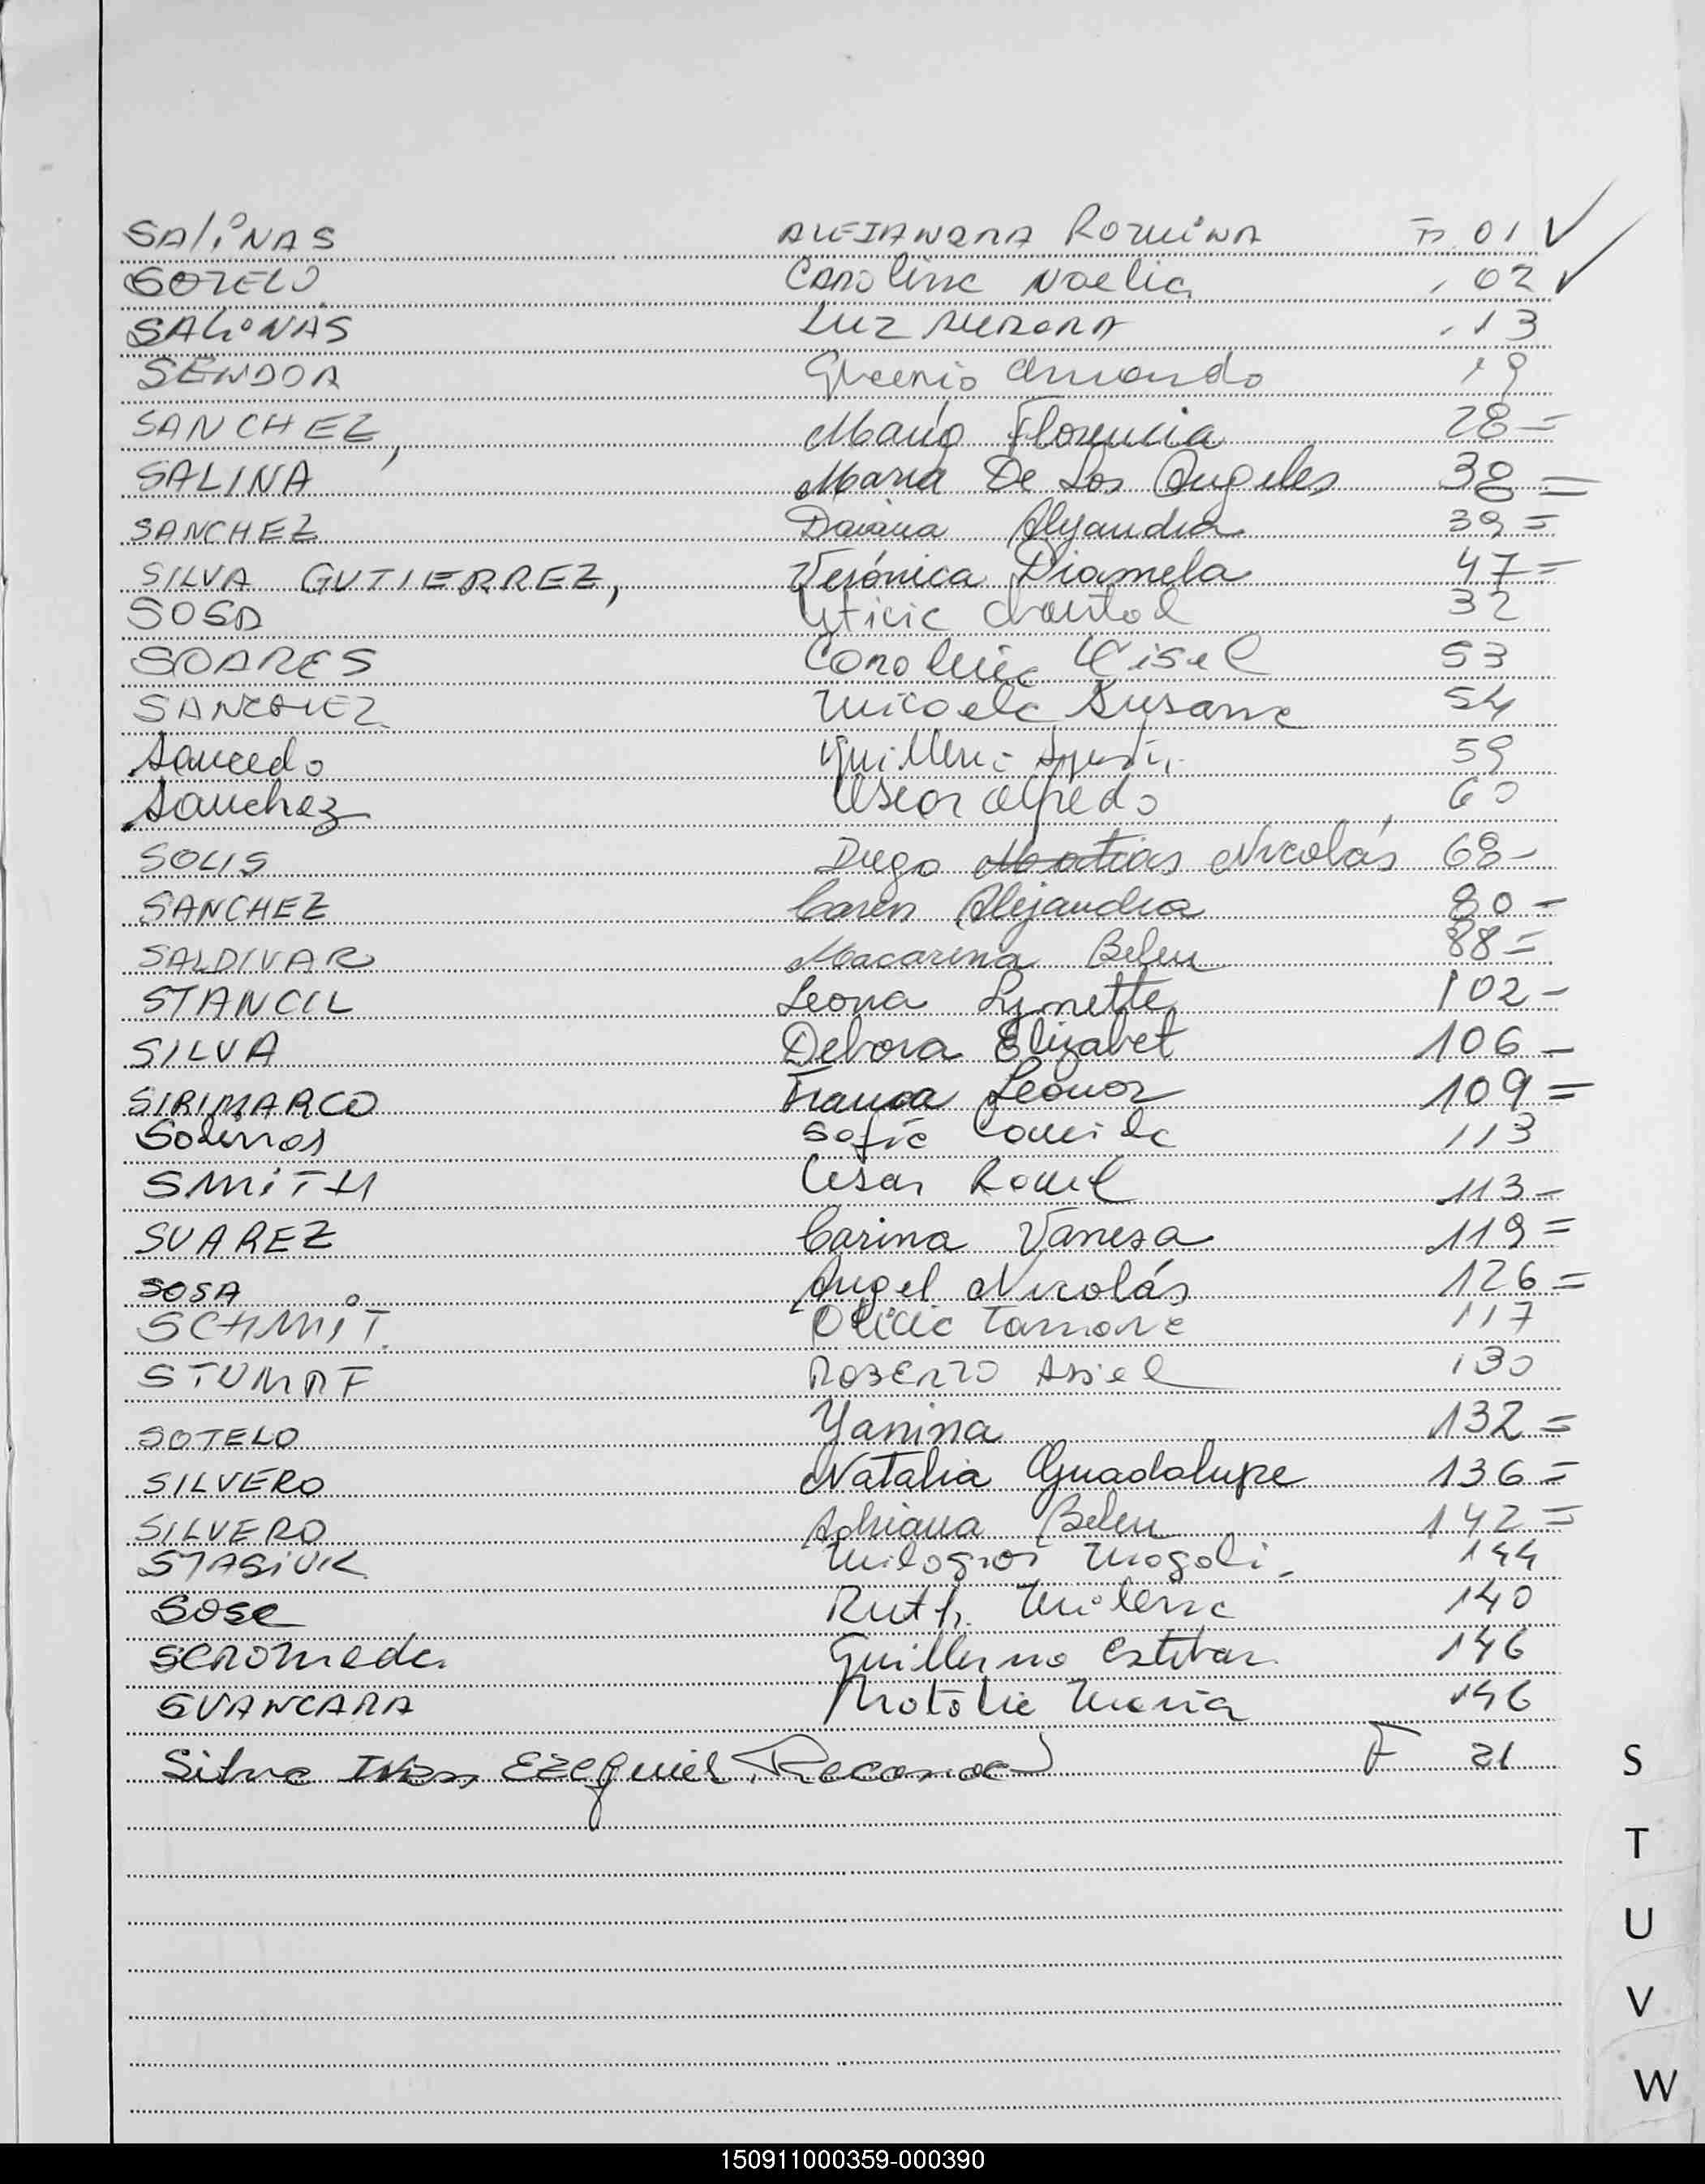 SALiNAS ALEJANDRA ROMiNA Fº 01 ✓
SOTELO CAROlina Noelia 02 ✓
SALiNAS LUZ AURORA 13
SENDOA Armando 19
SANCHEZ, María Florencia 28=
SALINA María De Los Angeles 38=
SANCHEZ Daiana Alejandra 39=
SILVA GUTIERREZ, Verónica Diamela 47=
SOSA 32
SOARES Carolina Gisel 53
SANCHEZ Micaela Susana 54
Saucedo 59
Sanchez Cesar Alfredo 60
SOLIS Diego Matias Nicolás 68-
SANCHEZ Caren Alejandra 80-
SALDIVAR Macarena Belen 88=
STANCIL Leona Lynette 102-
SILVA Debora Elizabet 106-
SIRIMARCO Franca Leonor 109=
Solinas Sofia Camila 113
SMiTH Cesar 113-
SUAREZ Carina Vanesa 119=
SOSA Angel Nicolás 126=
SCHMiT Tamara 117
STUMPF ROBERTO Asiel 130
SOTELO Yanina 132=
SILVERO Natalia Guadalupe 136=
SILVERO Adriana Belen 142=
STASiUK Milagros Magali 144
Sosa Ruth Milena 140
Guillermo Esteban 146
SVANCARA Natalia Maria 146
Silva Ezequiel F 21
S
T
U
V
W
150911000359-000390